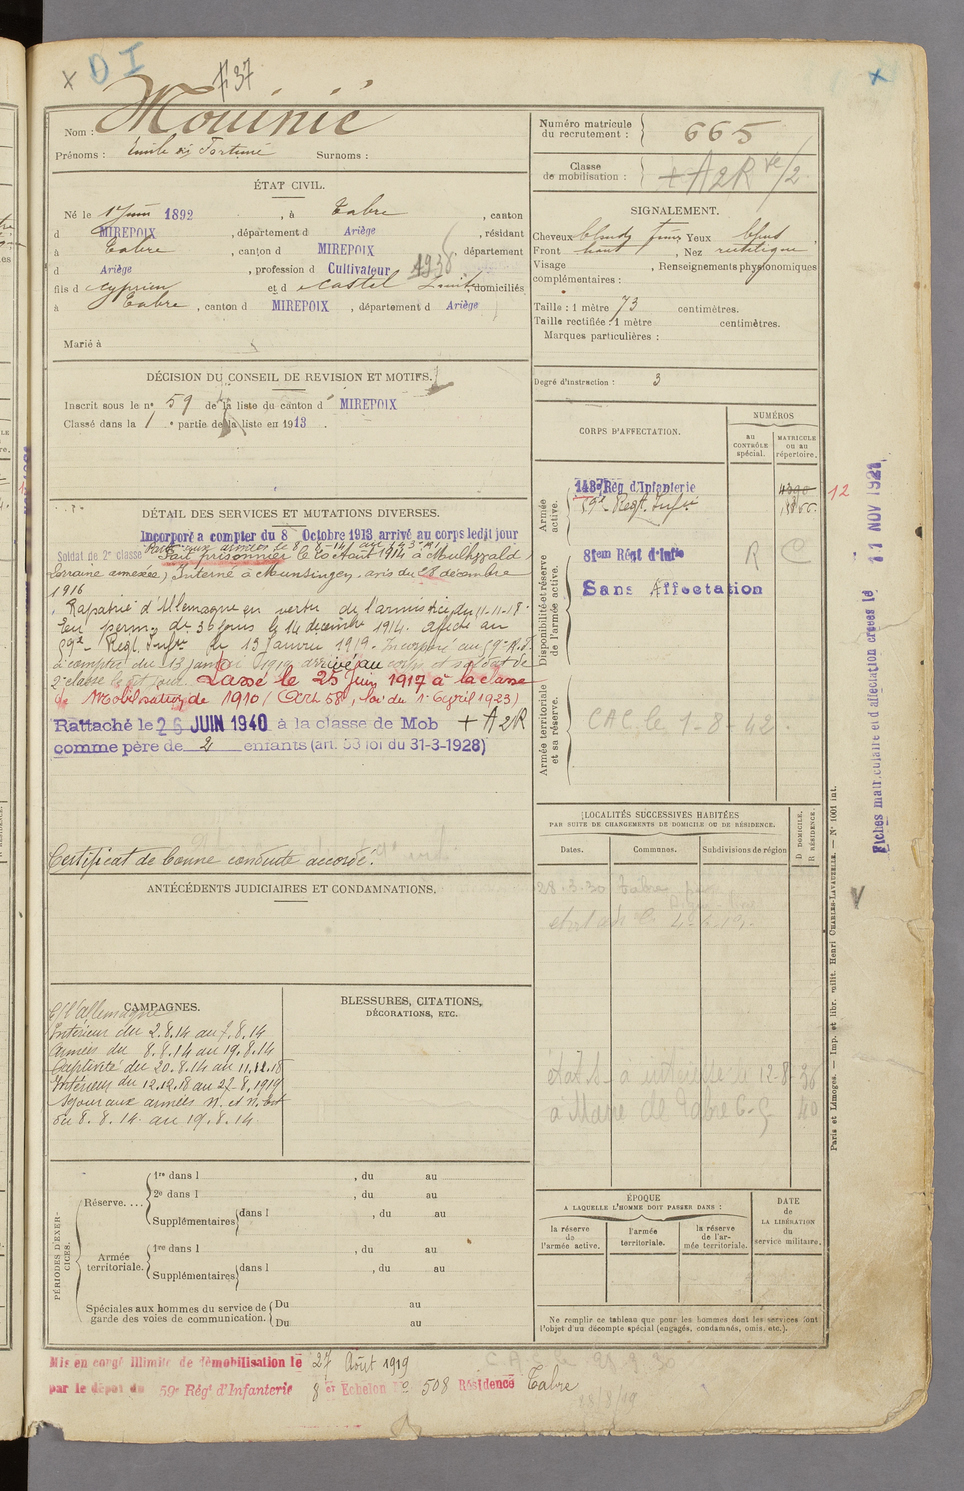 D I
F 37
Nom : Mouinié
Prénoms : Emile dj Fortuné Surnoms :
ÉTAT CIVIL.
Né le 1 Juin 1892, à Tabre, canton
d MIREPOIX, département d Ariège, résidant
à Tabre, canton d MIREPOIX département
d Ariège, profession d Cultivateur 1936
fils d Cyprien et d Castel, domiciliés
à Tabre, canton d MIREPOIX, département d Ariège
Marié à
DÉCISION DU CONSEIL DE REVISION ET MOTIFS.
Inscrit sous le nº 59 de la liste du canton d MIREPOIX
Classé dans la 1e partie de la liste en 1913.
DÉTAIL DES SERVICES ET MUTATIONS DIVERSES.
Incorporé a compter du 8 Octobre 1913 arrivé au corps ledit jour
Soldat de 2e classe
Fait prisonnier le 20 Aout 1914 à Mulhwald
Lorraine annexée) Interné à Meunsingen, avis du 28 décembre
1916
Rapatrié d'Allemagne en vertu de l'armistice du 11-11-18.
En perm. de 30 jours le 14 decembre 1914. Affecté au
59e Regt. Infie le 13 Janvier 1919. Incorporé au 59e R.I.
à compter du 13 janvier 1919 arrivé au corps et soldat de
2e classe le dit jour. Passé le 25 Juin 1917 à la classe
de Mobilisation de 1910 (Art 58, loi du 1er Avril 1923)
Rattaché le 26 JUIN 1940 à la classe de Mob + A2R
comme père de 2 enfants (art. 53 loi du 31-3-1928)
Certificat de bonne conduite accordé.
ANTÉCÉDENTS JUDICIAIRES ET CONDAMNATIONS.
CAMPAGNES.
C/ l'Allemagne
Intérieur du 2.8.14 au 7.8.14
Armées du 8.8.14 au 19.8.14
Captivité du 20.8.14 au 11.12.18
Intérieur du 12.12.18 au 27.8.1919
Séjour aux armées N. et N. Est
du 8.8.14 au 19.8.14.
BLESSURES, CITATIONS,
DÉCORATIONS, ETC.
PÉRIODES D'EXERCICES.
Réserve....
1re dans l , du au
2e dans l , du au
Supplémentaires dans l , du au
Armée territoriale.
1re dans l , du au
Supplémentaires dans l , du au
Spéciales aux hommes du service de garde des voies de communication.
Du au
Du au
Mis en congé illimité de démobilisation le 27 Août 1919
par le dépot du 59e Régt d'Infanterie 8e Echelon No 508 Résidence Tabre
28/8/19
Numéro matricule
du recrutement : 665
Classe
de mobilisation : + A2R
SIGNALEMENT.
Cheveux blonds Yeux bleus
Front haut, Nez rectiligne
Visage , Renseignements physionomiques
complémentaires :
Taille : 1 mètre 73 centimètres.
Taille rectifiée : 1 mètre centimètres.
Marques particulières :
Degré d'instruction : 3
CORPS D'AFFECTATION.
NUMÉROS
au
CONTRÔLE
spécial.
MATRICULE
ou au
répertoire.
Armée
active.
143e Rég d'Infanterie
59e Regt. Infie
12
Disponibilité et réserve
de l'armée active.
81em Régt d'Infie R C
Sans Affectation
Armée territoriale
et sa réserve.
CAC le 1-8-42.
LOCALITÉS SUCCESSIVES HABITÉES
PAR SUITE DE CHANGEMENTS DE DOMICILE OU DE RÉSIDENCE.
D DOMICILE.
R RÉSIDENCE.
Dates. Communes. Subdivisions de région
28.3.30 Tabre
12-8-36
a Maire de Tabre 40
ÉPOQUE
A LAQUELLE L'HOMME DOIT PASSER DANS :
la réserve
de
l'armée active.
l'armée
territoriale.
la réserve
de l'armée territoriale.
DATE
de
LA LIBÉRATION
du
service militaire.
Ne remplir ce tableau que pour les hommes dont les services font
l'objet d'un décompte spécial (engagés, condamnés, omis, etc.).
Paris et Limoges. — Imp. et libr. milit. Henri CHARLES-LAVAUZELLE. — Nº 1001 int.
Fiches matriculaire et d'affectation créées le 11 NOV 1921